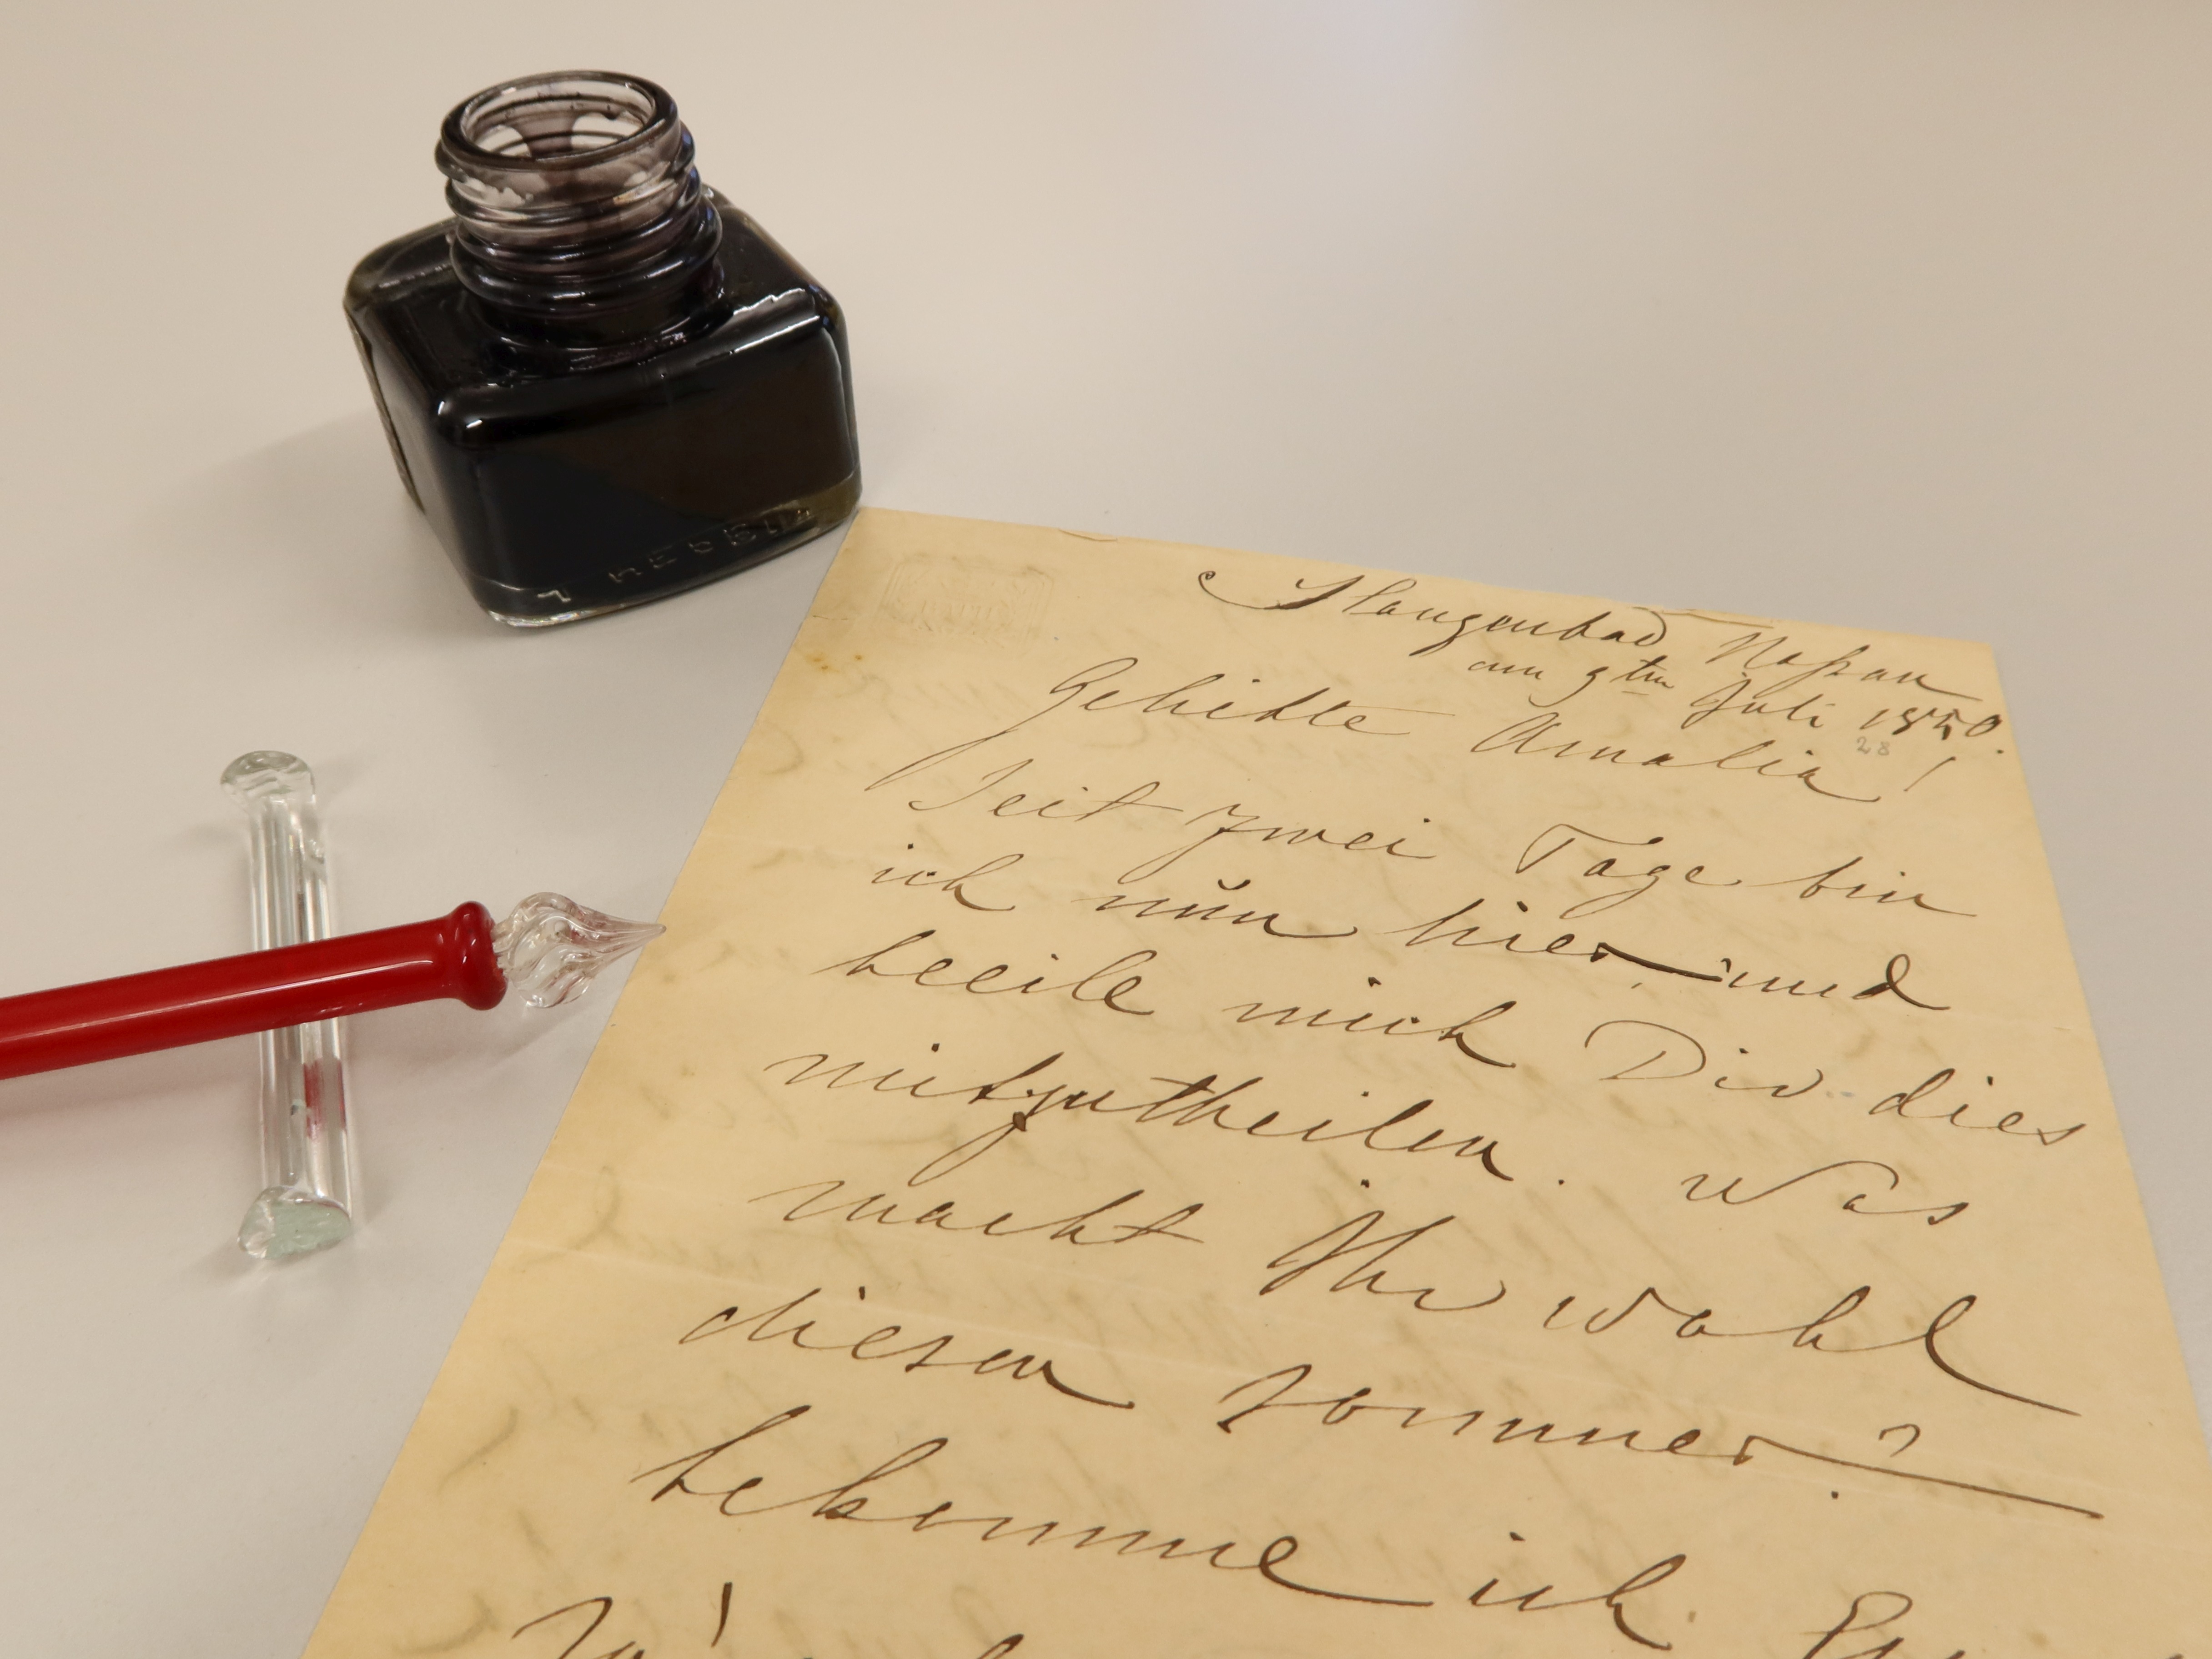 Slangenbad Naßau
am 9ten Juli 1850.
28
Geliebte Amalia!
Seit zwei Tage bin
ich nŭn hier und
beeile mich Dir dies
mitzutheilen. Was
macht Ihr wohl
diesen Sommer?
bekomme ich